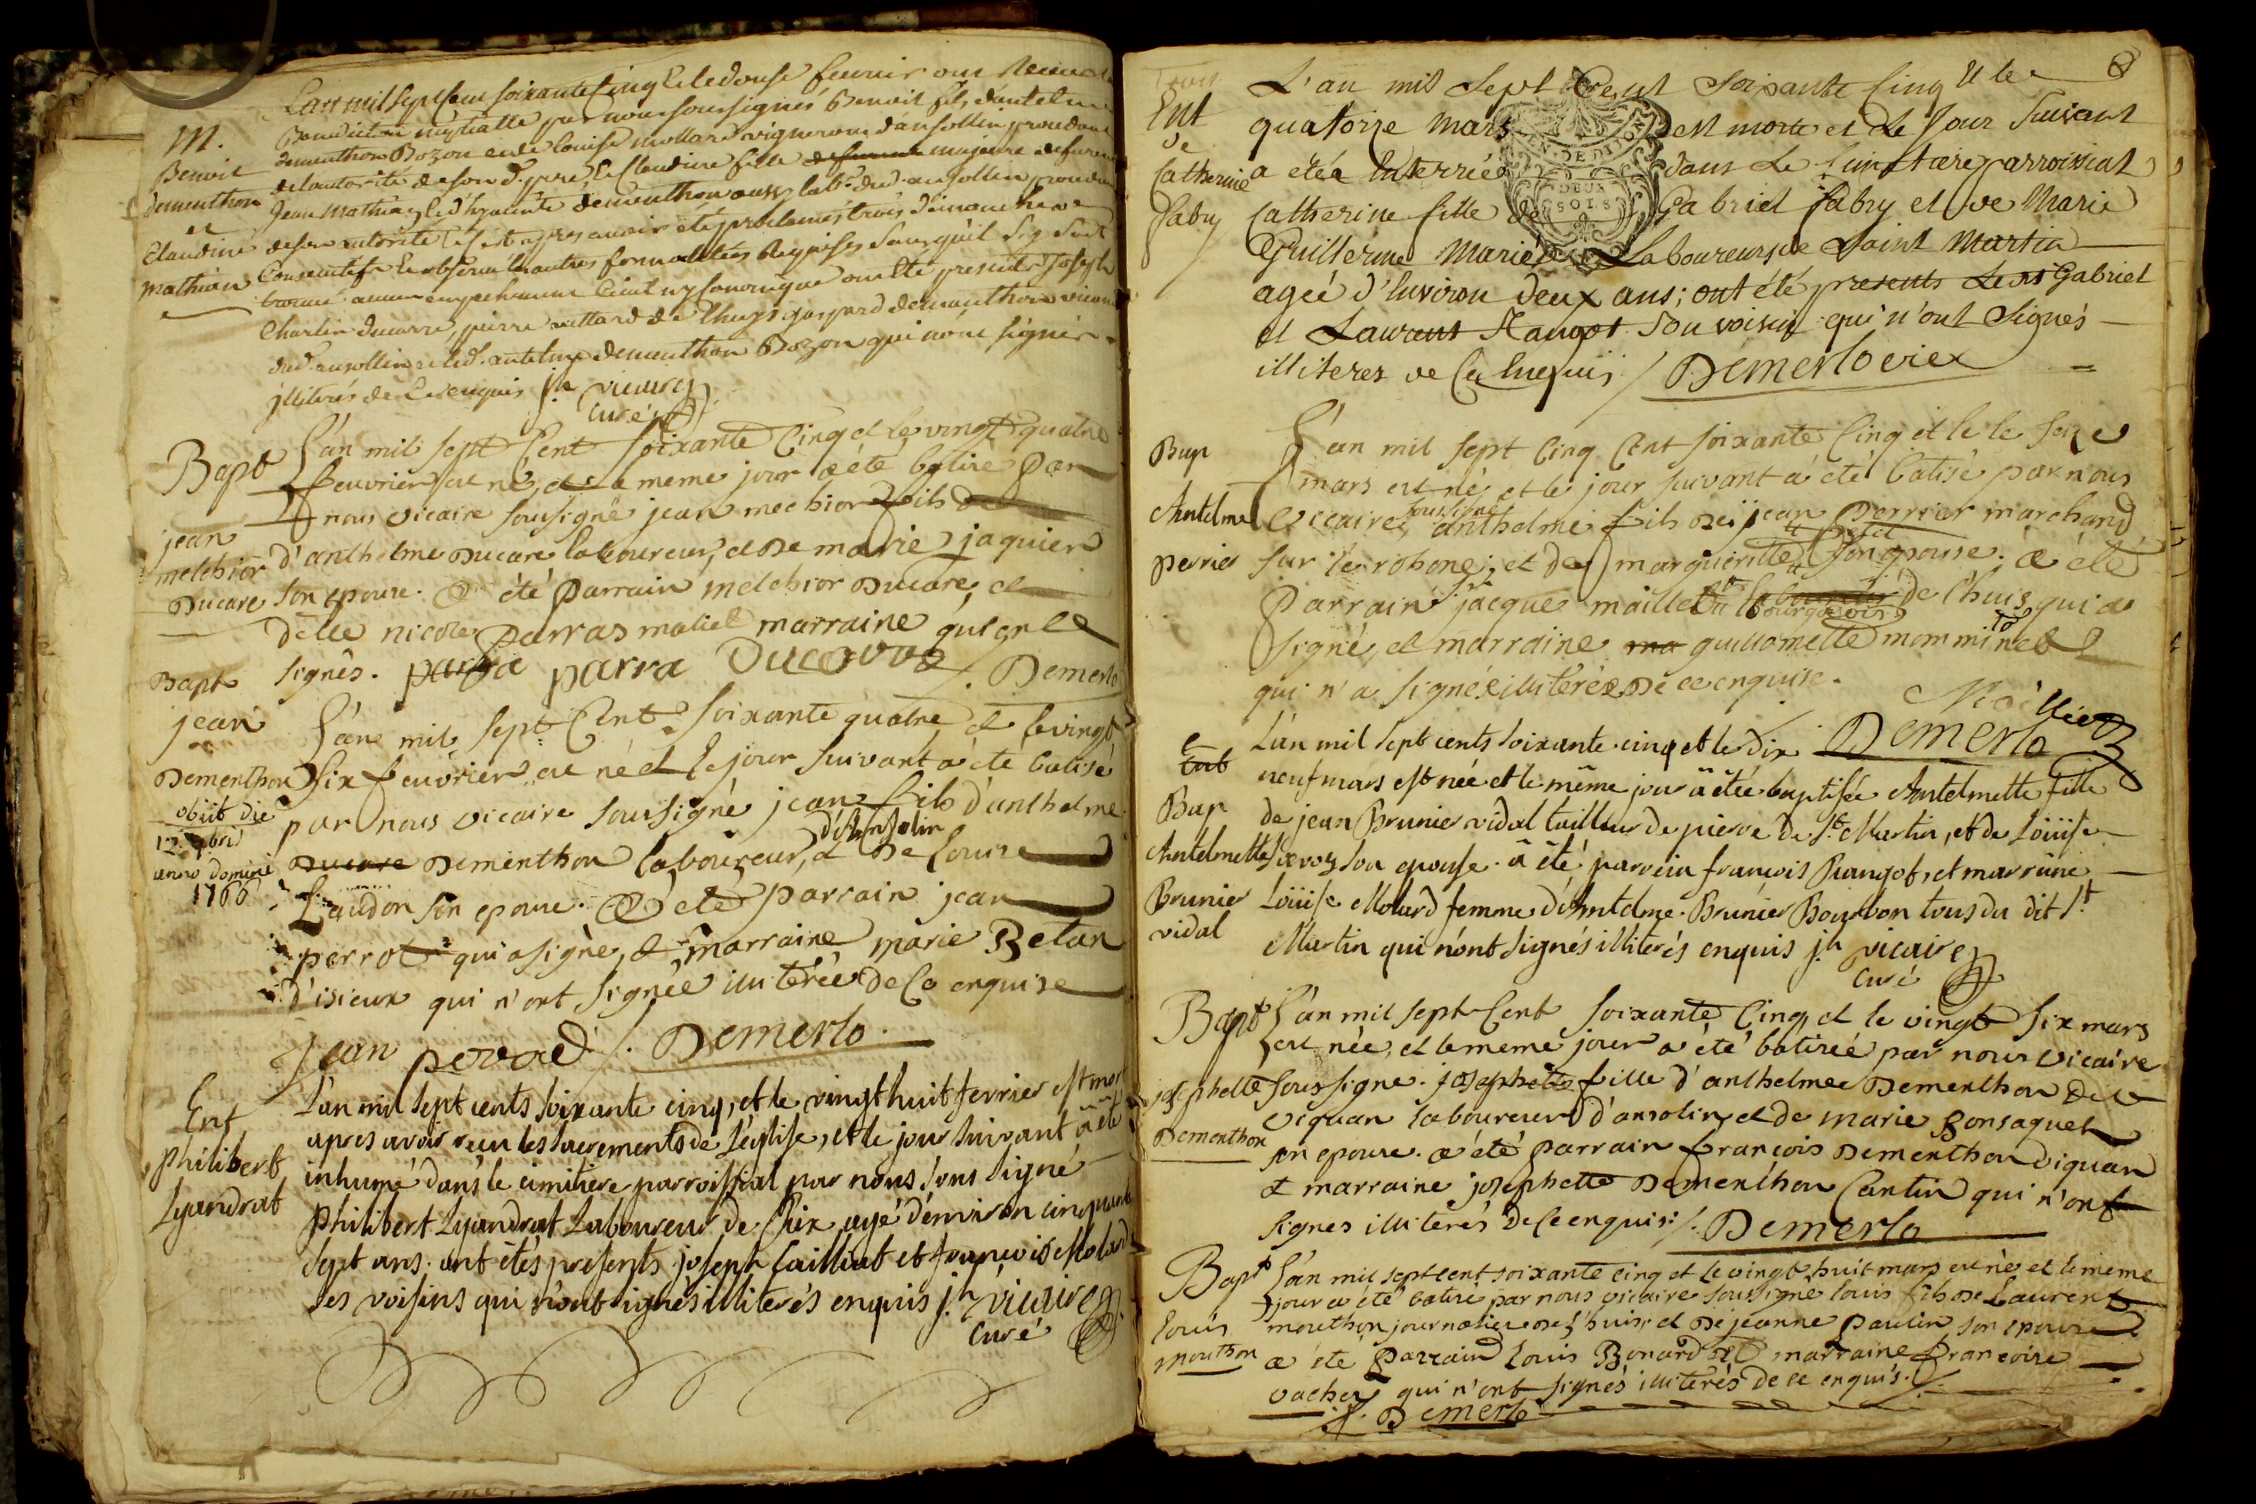 L'an mil sept cent soixante cinq et le douse fevrier ont receu la
M. Benediction nuptialle par nous soussignés Benoit fils d'antelme
Benoit dementhon Bozon et de louise mollard vigneron d'ansollin procedant
dementhon de l'autorité de son d. pere, et Claudine fille majeure de
et jean mathian dementhon aussy lab.r dud. ansollin procedant
Claudine de son autorité et ce apres avoir eté proclamés trois dimanches
mathian Consecutifs et observé les autres formalités Requises sans qu'il s'y soit
trouvé aucun empechement Civil ny Canonique ont été presents joseph
Charlin pierre mattard de Chuys gaspard dementhon
dud. ansollin et led. antelme dementhon Bozon qui n'ont signés
illiterés de ce enquis j.h vicaire
curé
Bapt L'an mil sept Cent soixante Cinq et le vingt quatre
feuvrier est né, et le meme jour a été batisé par
nous vicaire sousigné jean mechior fils de
jean d'anthelme Ducare laboureur, et de marie jaquier
melchior son epouse. a été parrain melchior Ducare, et
Ducare delle nicole parras marraine qui ont
signés. parra parra Ducarre Demerlo
Bapt
jean L'an mil sept Cent soixante quatre et le vingt
Dementhon six feuvrier est né et le jour suivant a été batisé
obiit die par nous vicaire soussigné jean fils d'anthelme
12 d'Ansolin
anno domini Ducare Dementhon laboureur, et de louise
1766 Laudon son epouse. a été parrain jean
perrot qui a signé, et marraine marie Betan
d'isieux qui n'ont signée illiterée de Ce enquise
jean perrod Demerlo
L'an mil sept cents soixante cinq, et le vingt huit fevrier est mort
Ent apres avoir reçu les sacrements de l'eglise, et le jour suivant a été
philibert inhumé dans le cimitiere parroissial par nous sous signé
Lyandrat philibert Lyandrat Laboureur de Chix agé d'environ cinquante
sept ans. ont étés presents joseph Cailliat et françois Molard
ses voisins qui n'ont signés illiterés enquis j.h vicaire
curé
8
L'an mil sept Cent Soixante Cinq et le
Ent quatorze mars est morte et le Jour Suivant
de
Catherine a étée Enterrée dans le Cimetiere parroissial
fabry Catherine fille de Gabriel fabry et de Marie
GEN. DE DIJON
DEUX SOLS
Guillerme Mariés Laboureurs de Saint Martin
ageé d'Environ deux ans; ont été presents Le Gabriel
et Laurent Rangot son voisin qui n'ont Signés
illiteres de Ce Enquis / Demerlo vic.
Bap L'an mil sept Cinq Cent soixante Cinq et le le seize
mars est né, et le jour suivant a été batisé par nous
Antelme vicaire soussigné anthelme fils de jean perrier marchand
perrier sur le rohone; et de marguerite petit son epouse. a été
parrain s.r jacque maillet bourgeois de l'huis qui a
signé, et marraine ma guillomette mommin
qui n'a signé illiterée De ce enquise.
Mailliet
Demerlo
L'an mil sept cents soixante-cinq et le dix
Ent neuf mars est née et le même jour a étée baptisée Antelmette fille
Bap de jean Brunier vidal tailleur de pierre de S.t Martin, et de Loüise
Antelmette son epouse. a été parrein françois Rangot, et marraine
Brunier Loüise Molard femme d'Antelme Brunier Bourbon tous du dit S.t
vidal Martin qui n'ont signés illiterés enquis j.h vicaire
curé
Bapt L'an mil sept Cent soixante Cinq, et le vingt six mars
est née, et le meme jour a été batisée par nous vicaire
josephette soussigné. josephette fille d'anthelme Dementhon De
viquan laboureur d'ansolin et de marie Bonsaquet
Dementhon son epouse. a été parrain françois Dementhon Diquan
et marraine josephette Dementhon Cantin qui n'ont
signés illiterés de ce enquis. / Demerlo
Bapt L'an mil sept cent soixante cinq et le vingt huit mars est né et le meme
jour a été batisé par nous vicaire soussigné louis fils de Laurent
louis mouthon journalier de l'huis, et de jeanne paulin son epouse
mouthon a été parrain louis Bonard et marraine françoise
vacher qui n'ont signés illiterés de ce enquis.
Demerlo